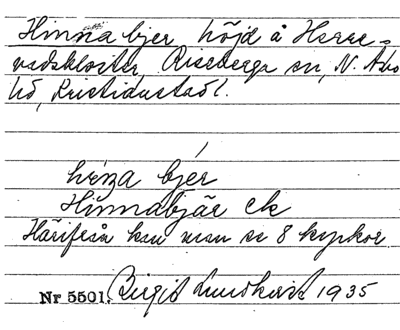 Hinna bjer höjd å Herre-
vadskloster, Riseberga sn, N. Åsbo
hd, Kristianstad l.
hinna bjér
Hinnabjär ek
Härifrån kan man se 8 kyrkor
Nr 5501. Birgit Lundkvist 1935